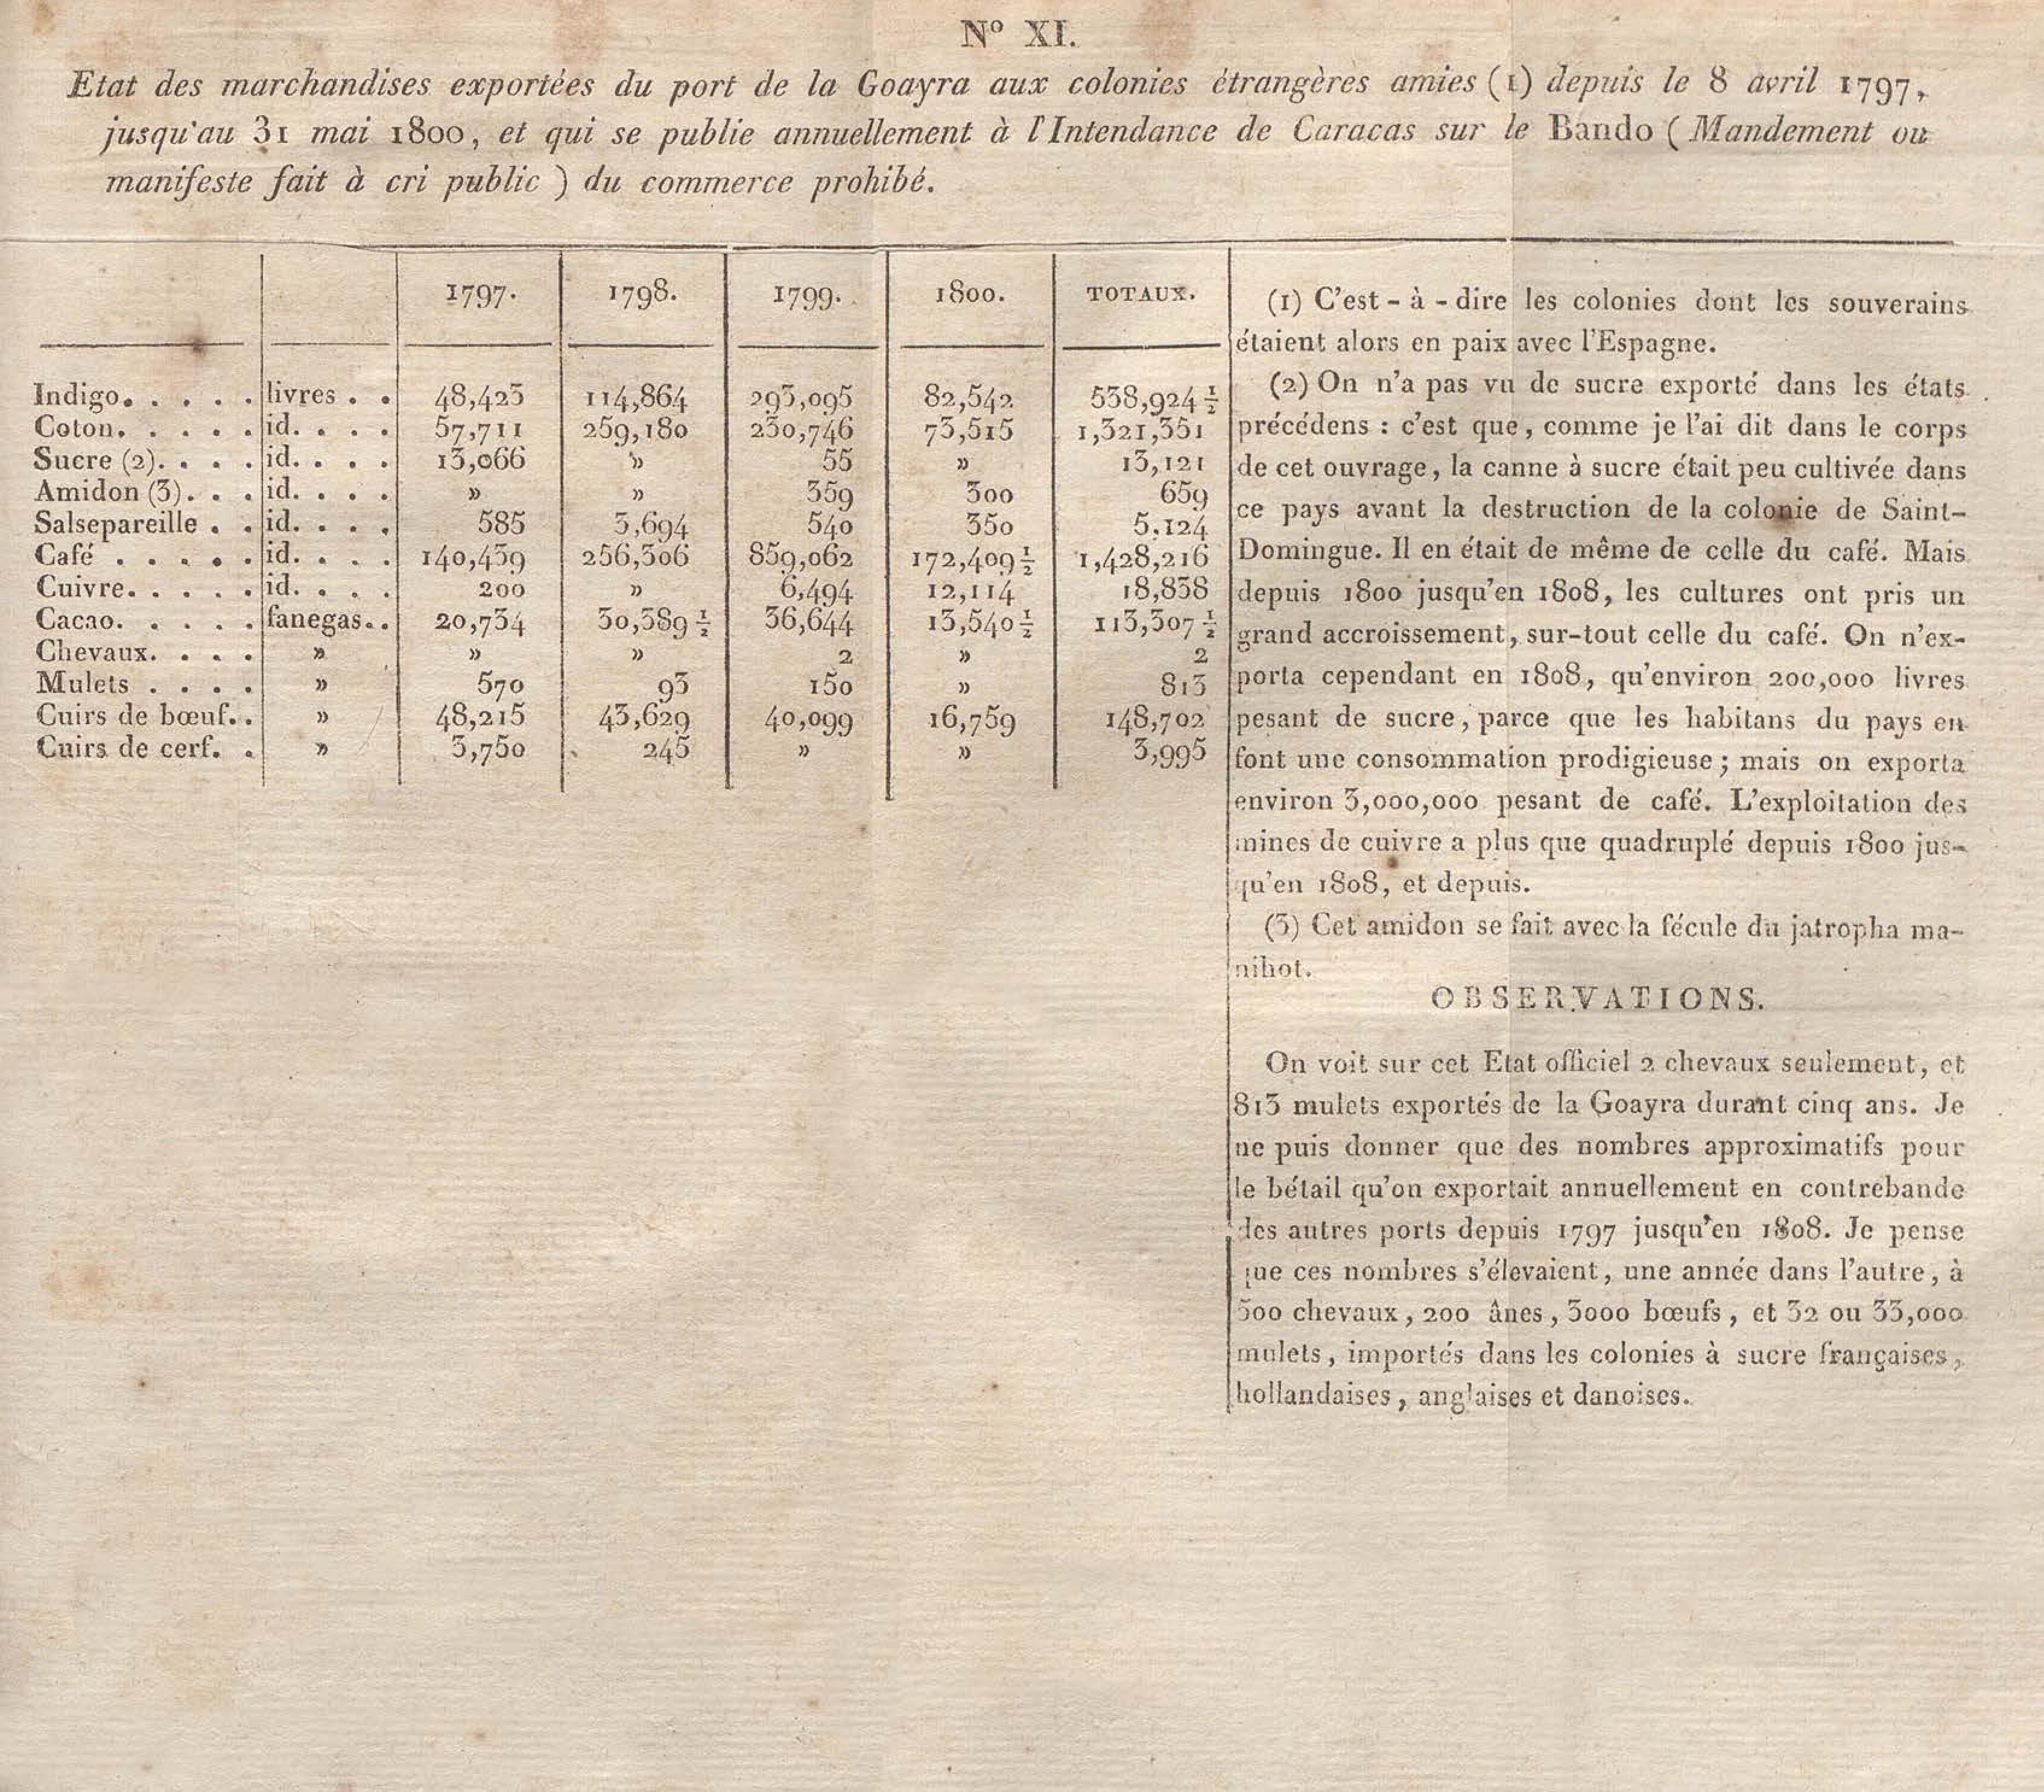 Nº XI.
Etat des marchandises exportées du port de la Goayra aux colonies étrangères amies (1) depuis le 8 avril 1797,
jusqu'au 31 mai 1800, et qui se publie annuellement à l'Intendance de Caracas sur le Bando (Mandement ou
manifeste fait à cri public) du commerce prohibé.
1797. 1798. 1799. 1800. TOTAUX.
Indigo. . . . . . livres . . 48,423 114,864 293,095 82,542 538,924 ½
Coton. . . . . . id. . . . 57,711 259,180 230,746 73,515 1,321,351
Sucre (2). . . . . id. . . . 13,066 » 55 » 13,121
Amidon (3). . . . id. . . . » » 359 300 659
Salsepareille . . id. . . . 585 3,694 540 350 5,124
Café . . . . . . id. . . . 140,439 256,306 859,062 172,409 ½ 1,428,216
Cuivre. . . . . . id. . . . 200 » 6,494 12,114 18,838
Cacao. . . . . . fanegas. . 20,734 30,389 ½ 36,644 13,540 ½ 113,307 ½
Chevaux. . . . . » » » 2 » 2
Mulets . . . . . » 570 93 150 » 813
Cuirs de bœuf. . » 48,215 43,629 40,099 16,759 148,702
Cuirs de cerf. . » 3,750 245 » » 3,995
(1) C'est-à-dire les colonies dont les souverains
étaient alors en paix avec l'Espagne.
(2) On n'a pas vu de sucre exporté dans les états
précédens : c'est que, comme je l'ai dit dans le corps
de cet ouvrage, la canne à sucre était peu cultivée dans
ce pays avant la destruction de la colonie de Saint-
Domingue. Il en était de même de celle du café. Mais
depuis 1800 jusqu'en 1808, les cultures ont pris un
grand accroissement, sur-tout celle du café. On n'ex-
porta cependant en 1808, qu'environ 200,000 livres
pesant de sucre, parce que les habitans du pays en
font une consommation prodigieuse ; mais on exporta
environ 3,000,000 pesant de café. L'exploitation des
mines de cuivre a plus que quadruplé depuis 1800 jus-
qu'en 1808, et depuis.
(3) Cet amidon se fait avec la fécule du jatropha ma-
nihot.
OBSERVATIONS.
On voit sur cet Etat officiel 2 chevaux seulement, et
813 mulets exportés de la Goayra durant cinq ans. Je
ne puis donner que des nombres approximatifs pour
le bétail qu'on exportait annuellement en contrebande
des autres ports depuis 1797 jusqu'en 1808. Je pense
que ces nombres s'élevaient, une année dans l'autre, à
500 chevaux, 200 ânes, 3000 bœufs, et 32 ou 33,000
mulets, importés dans les colonies à sucre françaises,
hollandaises, anglaises et danoises.